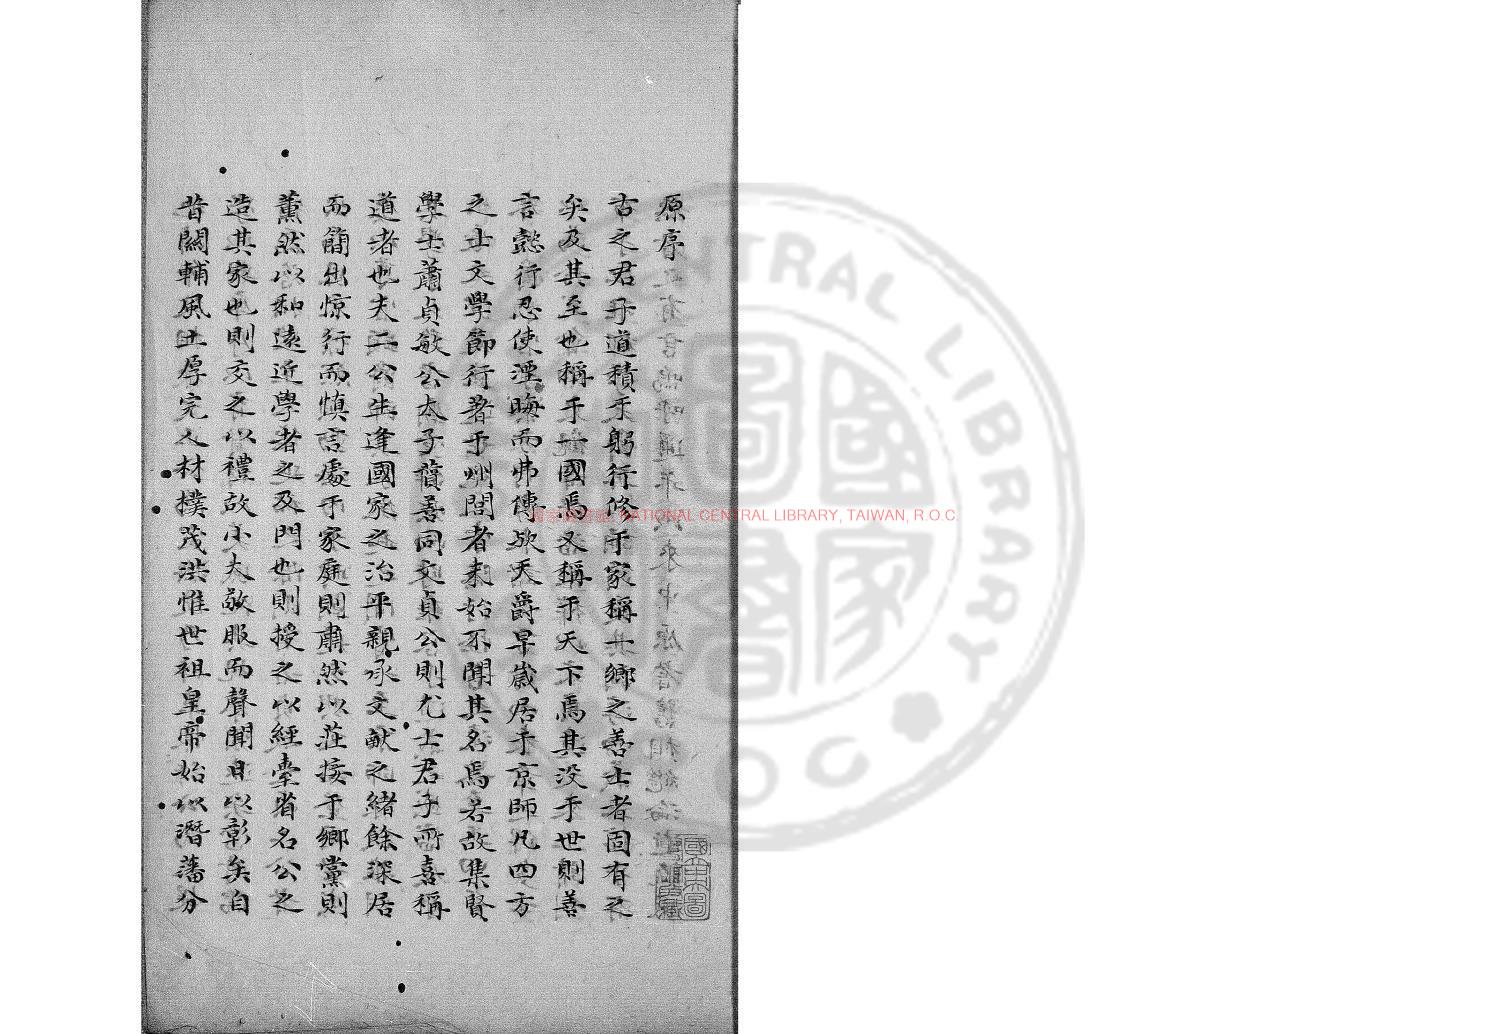 原序
古之君子道積于躬行修于家稱一鄉之善士者固有之
矣及其至也稱于一國焉又稱于天下焉其没于世則善
言懿行忍使湮晦而弗傳歟天爵早歲居于京師凡四方
之士文學節行著于州閭者未始不聞其名焉若故集賢
學士蕭貞敏公太子贊善同文貞公則尤士君子所喜稱
道者也夫二公生逢國家之治平親承文獻之緒餘深居
而簡出惊行而慎言處于家庭則肅然以莊接于鄉黨則
薰然以和遠近學者之及門也則授之以經臺省名公之
造其家也則交之以禮故小大敬服而聲聞日以彰矣自
昔關輔風土厚完人材樸茂洪惟世祖皇帝始以潛藩分
國家圖書館, NATIONAL CENTRAL LIBRARY, TAIWAN, R.O.C.
CENTRAL LIBRARY
R O C